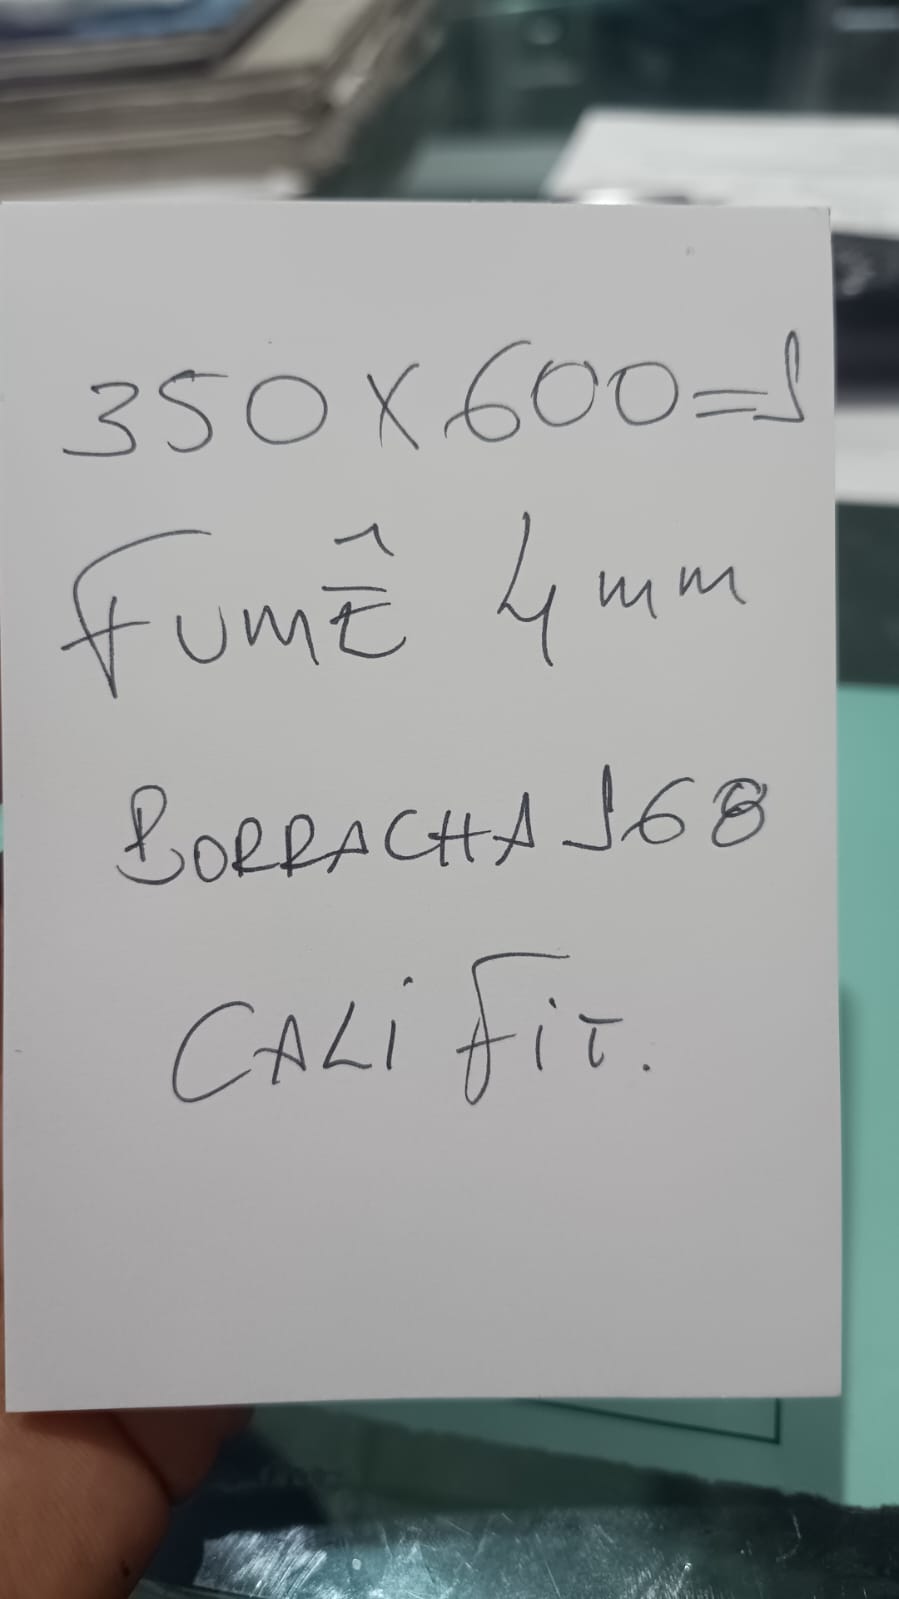 350X600=1
FUMÊ 4mm
BORRACHA 168
CALI FIT.